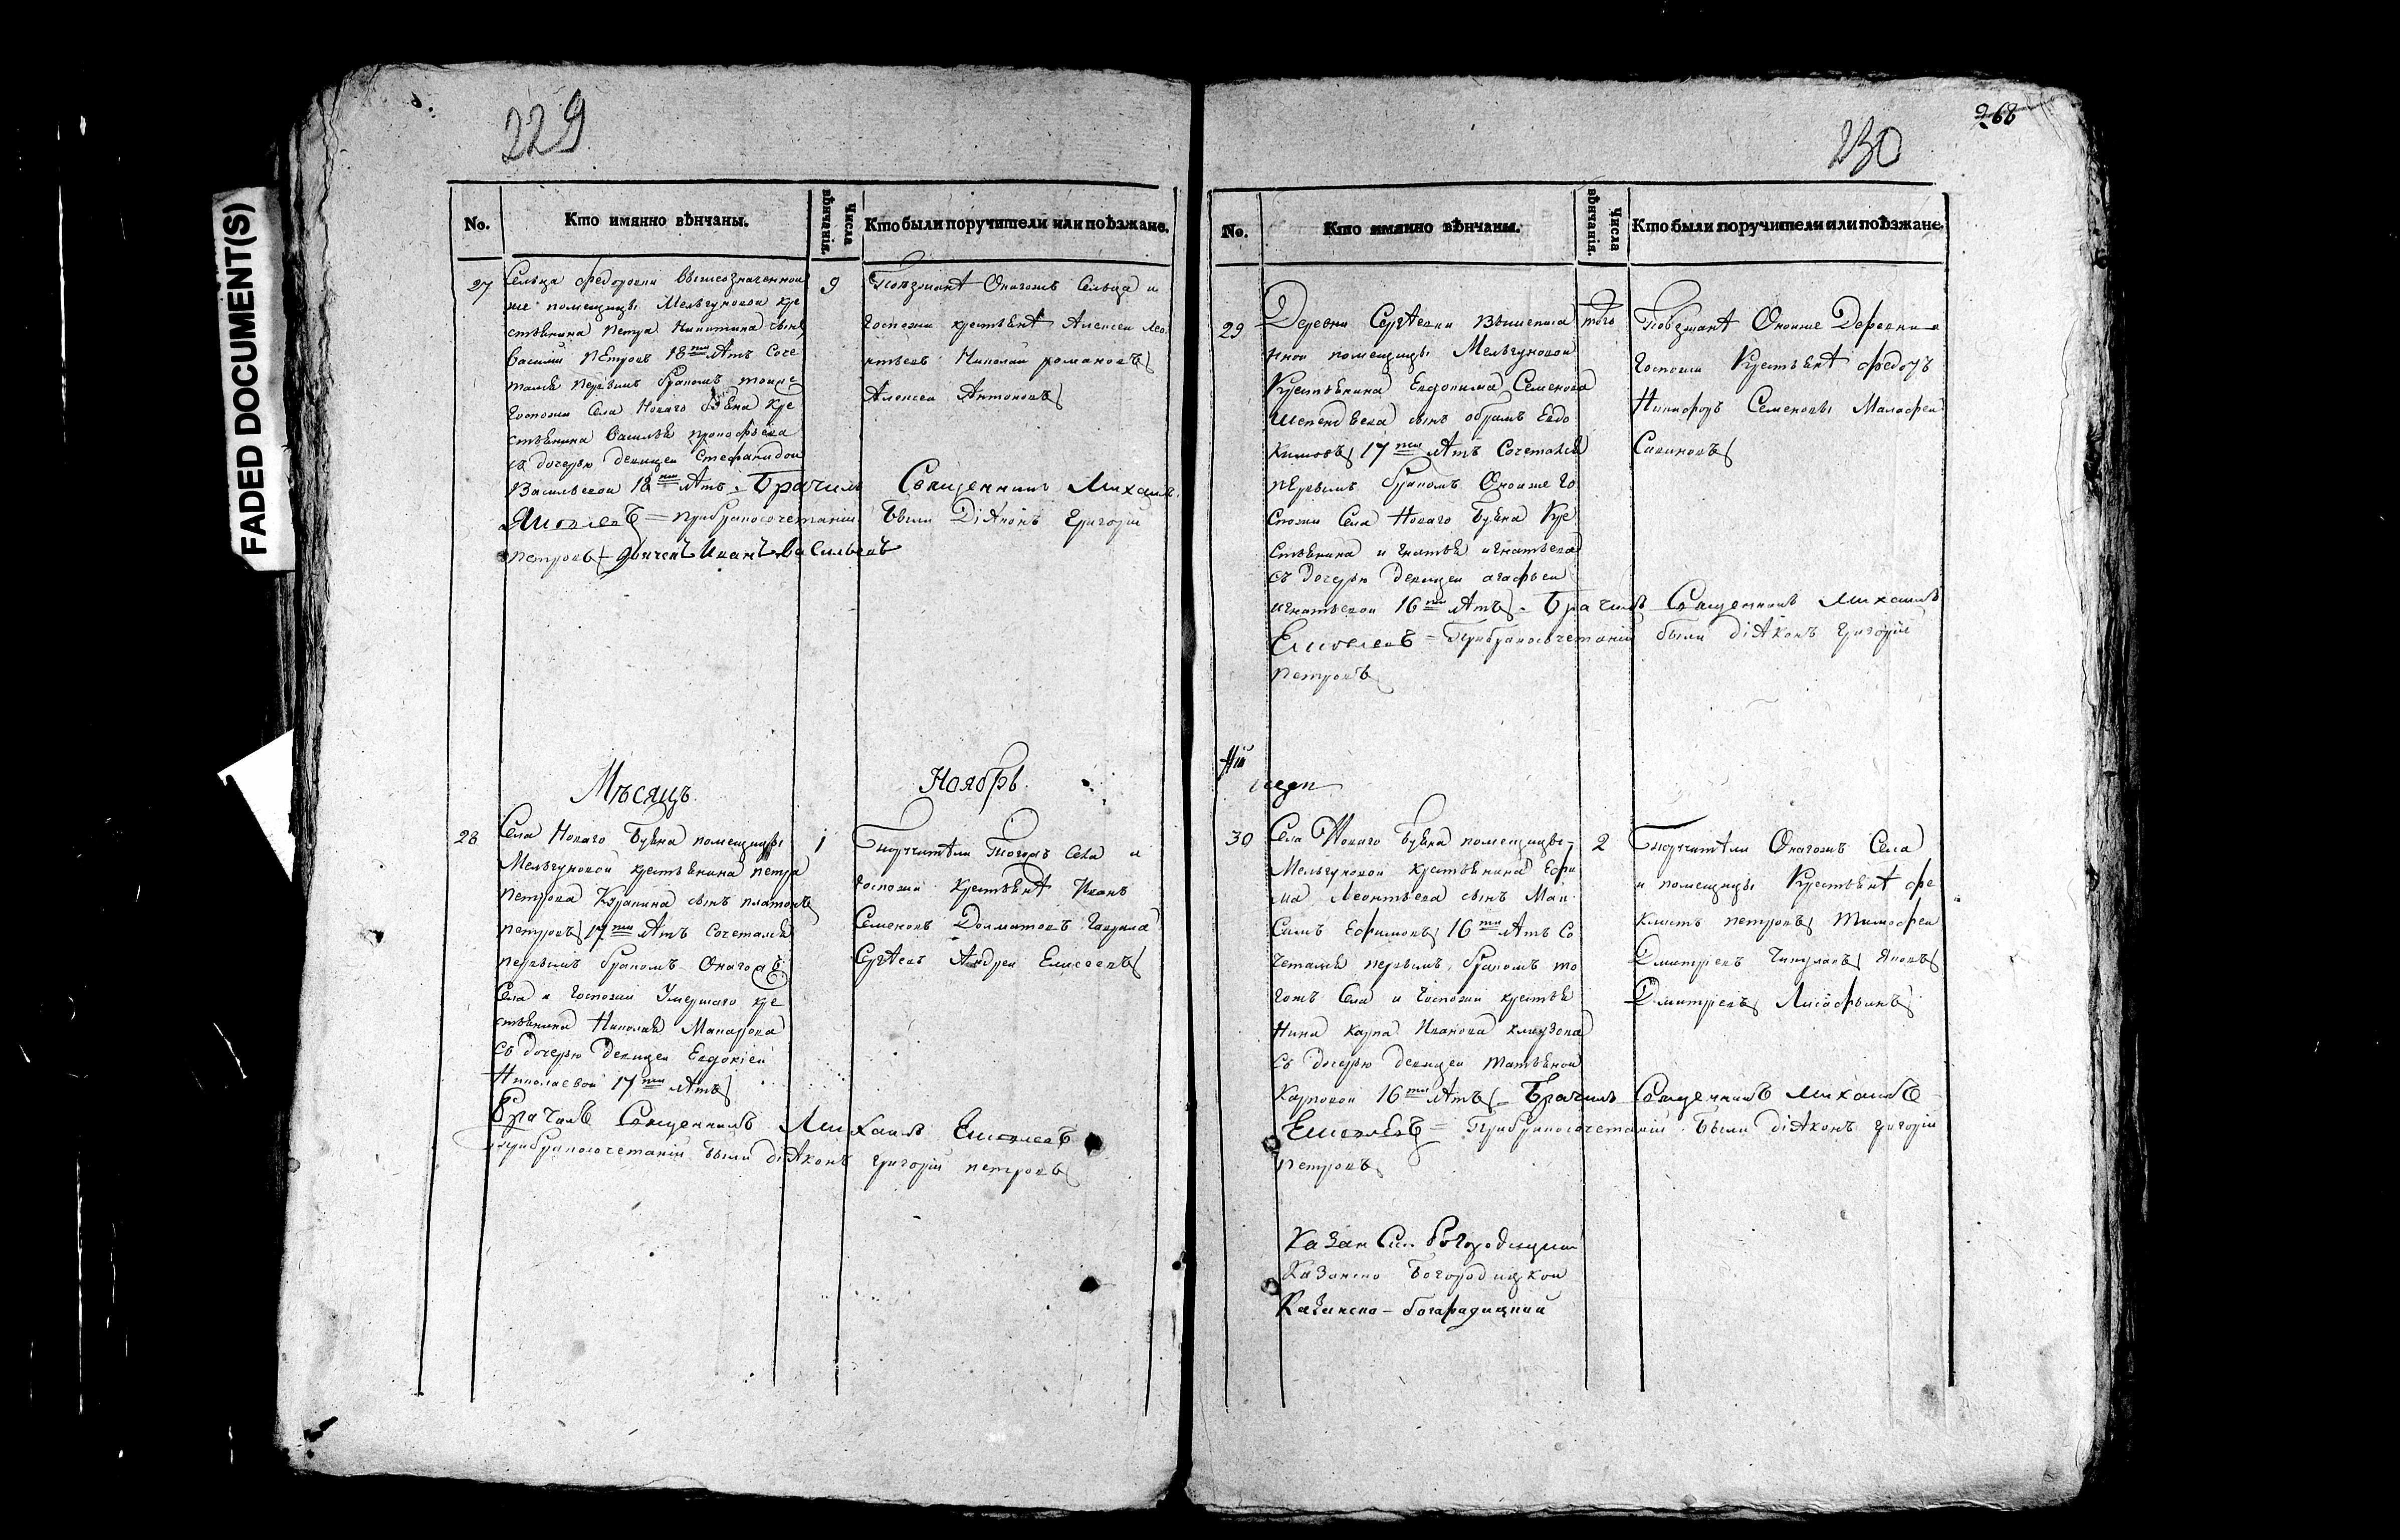 FADED DOCUMENT(S)
229
No.
Кто имянно вѣнчаны.
Числа вѣнчанія.
Кто были поручители или поѣзжане.
27
Сельца Федоровки вышеозначенной
же помещицы Мельгуновой кре
стьянина Петра Никитина сынъ
Василий Петровъ 18ти лѣтъ соче
тался первымъ бракомъ тоиже
Госпожи Села Новаго Буяна кре
стьянина Василья
съ дочерью девицеи Стефанидои
Васильевои 18ти лѣтъ. Брачилъ Священникъ Михаилъ
Елисеевъ = прибракосочетаніи были Діяконъ Григорій
Петровъ Дьячекъ Иванъ Васильевъ
9
Поезжанѣ Оногожъ Сельца и
Госпожи крестьянѣ Алексеи Лео
нтьевъ Николай Романовъ
Алексеи Антоновъ
Мѣсяцъ Ноябрь.
28
Села Новаго Буяна помещицы
Мельгуновой крестьянина Петра
Петрова сынъ Платонъ
Петровъ 17ти лѣтъ Сочетался
первымъ бракомъ Оногожъ
Села и Госпожи Умершаго кре
стьянина Николая Макарова
съ дочерью девицеи Евдокіеи
Николаевой 17ти лѣтъ
Брачилъ Священникъ Михаилъ Елисеевъ
прибракосочетаніи были діяконъ Григорій Петровъ
1
Поручители Тогожъ Села и
Госпожи крестьянѣ Иванъ
Семеновъ Долматовъ Гаврила
Сергѣевъ Андреи Елисеевъ
268
230
No.
Кто имянно вѣнчаны.
Числа вѣнчанія.
Кто были поручители или поѣзжане.
29
Деревни Сергѣевки Вышеписа
нной помещицы Мельгуновой
Крестьянина Евдокима Семенова
сынъ Евдо
кимовъ 17ти лѣтъ Сочетался
первымъ бракомъ Оноиже Го
спожи Села Новаго Буяна Кре
стьянина Игнатья Игнатьева
съ дочерью девицеи Агафьеи
Игнатьевои 16ти лѣтъ. Брачилъ Священникъ Михаилъ
Елисеевъ = Прибракосочетаніи были діяконъ Григорій
Петровъ
того
Поезжанѣ Оноиже Деревни и
Госпожи Крестьянѣ Федоръ
Никифоръ Семеновы Малафеи
Савиновъ
30
Села Новаго Буяна помещицы
Мельгуновой крестьянина Ефи
ма Леонтьева сынъ Мак
симъ Ефимовъ 16ти лѣтъ Со
четался первымъ бракомъ то
гожъ Села и Госпожи крестья
нина Карпа Иванова
съ дочерью девицеи Татьяной
Карповой 16ти лѣтъ Брачилъ Священникъ Михаилъ
Елисеевъ = Прибракосочетаніи были діяконъ Григорій
Петровъ
2
Поручители Оногожъ Села
и помещицы Крестьянѣ Фе
Петровъ Тимофеи
Дмитріевъ Яковъ
Дмитріевъ
Казанско Богородицкои
Казанско-богарадицкий